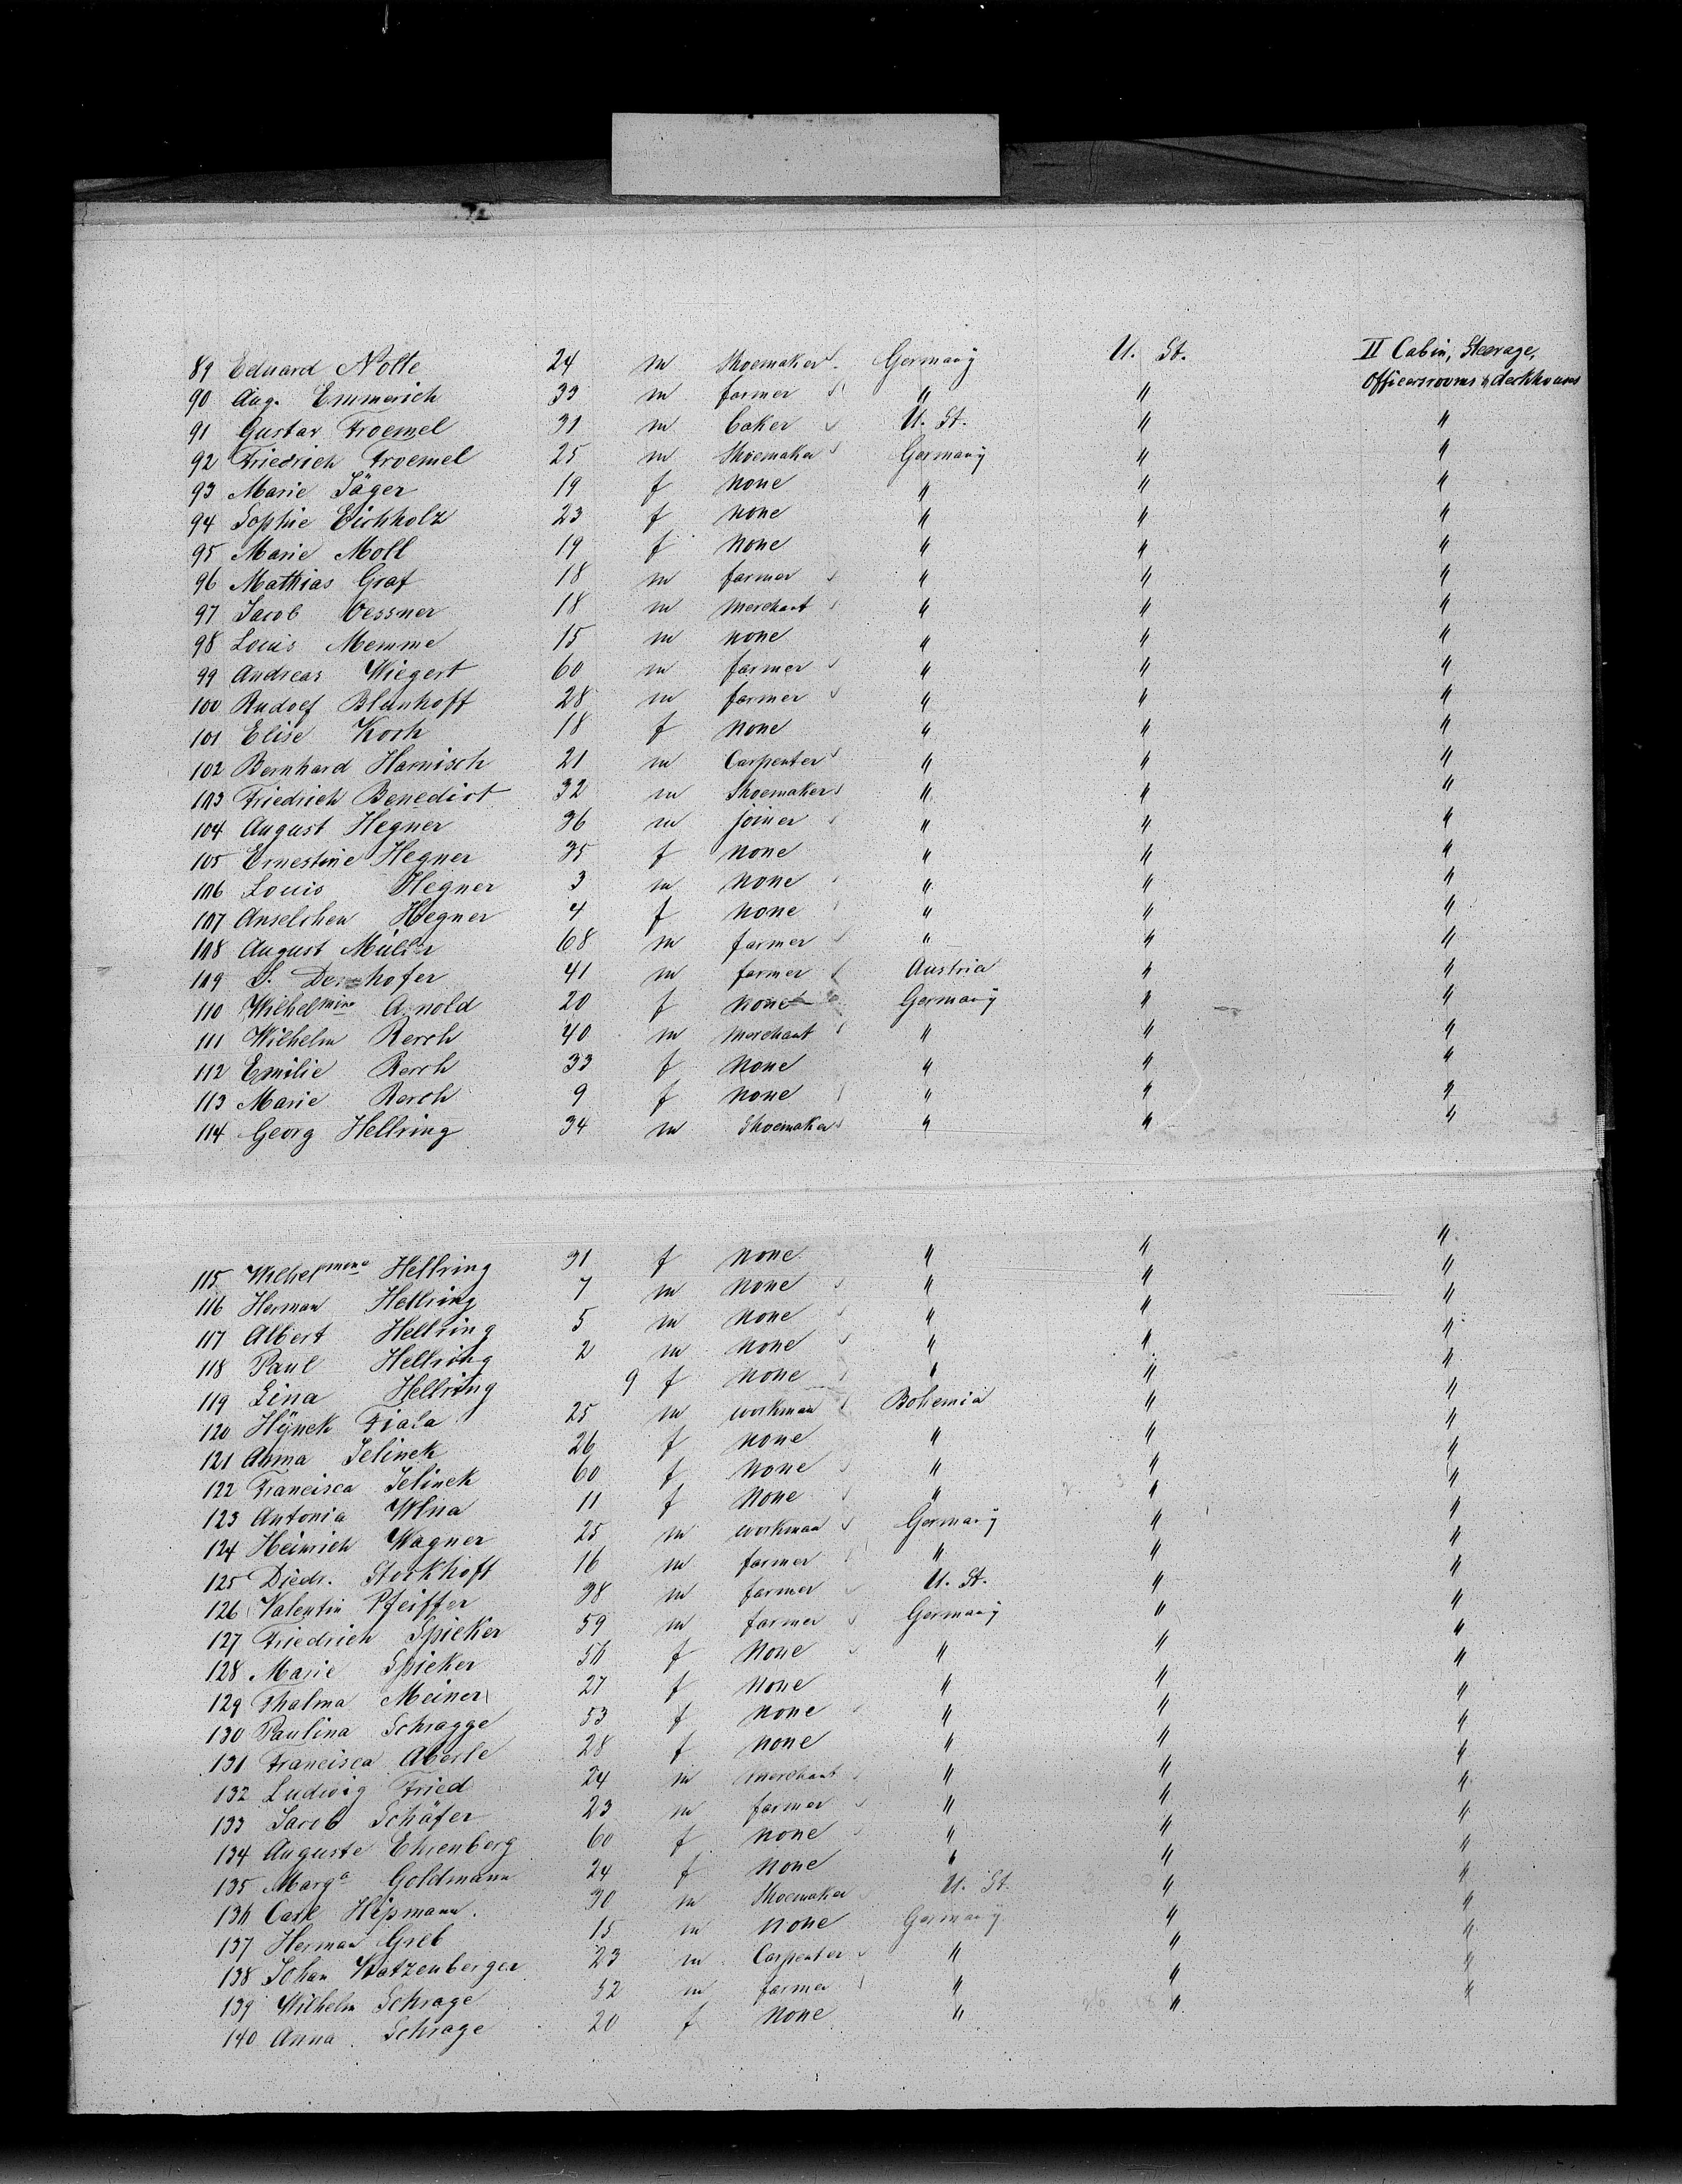 89 Eduard Nolte 24 m Shoemaker Germany U. St. II Cabin, Steerage,
90 Aug. Emmerich 33 m farmer " " Officersrooms & deckhouses
91 Gustav Troemel 31 m baker U. St. " "
92 Friedrich Troemel 25 m Shoemaker Germany " "
93 Marie Jäger 19 f none " " "
94 Sophie Eichholz 23 f none " " "
95 Marie Moll 19 f none " " "
96 Mathias Graf 18 m farmer " " "
97 Jacob Oessner 18 m merchant " " "
98 Louis Memme 15 m none " " "
99 Andreas Wiegert 60 m farmer " " "
100 Rudolf Blunhoff 28 m farmer " " "
101 Elise Koch 18 f none " " "
102 Bernhard Harnisch 21 m Carpenter " " "
103 Friedrich Benedict 32 m Shoemaker " " "
104 August Hegner 36 m joiner " " "
105 Ernestine Hegner 35 f none " " "
106 Louis Hegner 3 m none " " "
107 Anselchen Hegner 4 f none " " "
108 August Müller 68 m farmer " " "
109 S. 41 m farmer Austria " "
110 Wilhelmine Arnold 20 f none Germany " "
111 Wilhelm Rerch 40 m merchant " " "
112 Emilie Rerch 33 f none " " "
113 Marie Rerch 9 f none " " "
114 Georg Hellring 34 m Shoemaker " " "
115 Wilhelmine Hellring 31 f none " " "
116 Herman Hellring 7 m none " " "
117 Albert Hellring 5 m none " " "
118 Paul Hellring 2 m none " " "
119 Lina Hellring 9 f none " " "
120 Hÿnek Fiala 25 m workman Bohemia " "
121 Anna Jelinek 26 f none " " "
122 Francisca Jelinek 60 f none " " "
123 Antonia Wlna 11 f none " " "
124 Heinrich Wagner 25 m workman Germany " "
125 Diedr. Storkhoft 16 m farmer " " "
126 Valentin Pfeiffer 38 m farmer U. St. " "
127 Friedrich Spieker 59 m farmer Germany " "
128 Marie Spieker 56 f none " " "
129 Thalma Meiner 27 f none " " "
130 Paulina Schragge 53 f none " " "
131 Francisca Aberle 28 f none " " "
132 Ludwig Fried 24 m merchant " " "
133 Jacob Schäfer 23 m farmer " " "
134 Auguste Ehrenberg 60 f none " " "
135 Marga Goldmann 24 f none " " "
136 Carl Hipmann. 30 m Shoemaker U. St. " "
137 Herman Greb 15 m none Germany " "
138 Johan Katzenberger 23 m Carpenter " " "
139 Wilhelm Schrage 52 m farmer " " "
140 Anna Schrage 20 f none " "